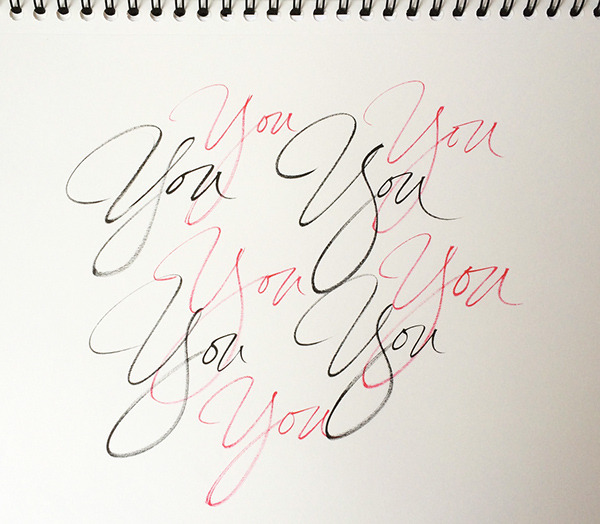 You You
You You
You You
You You
You